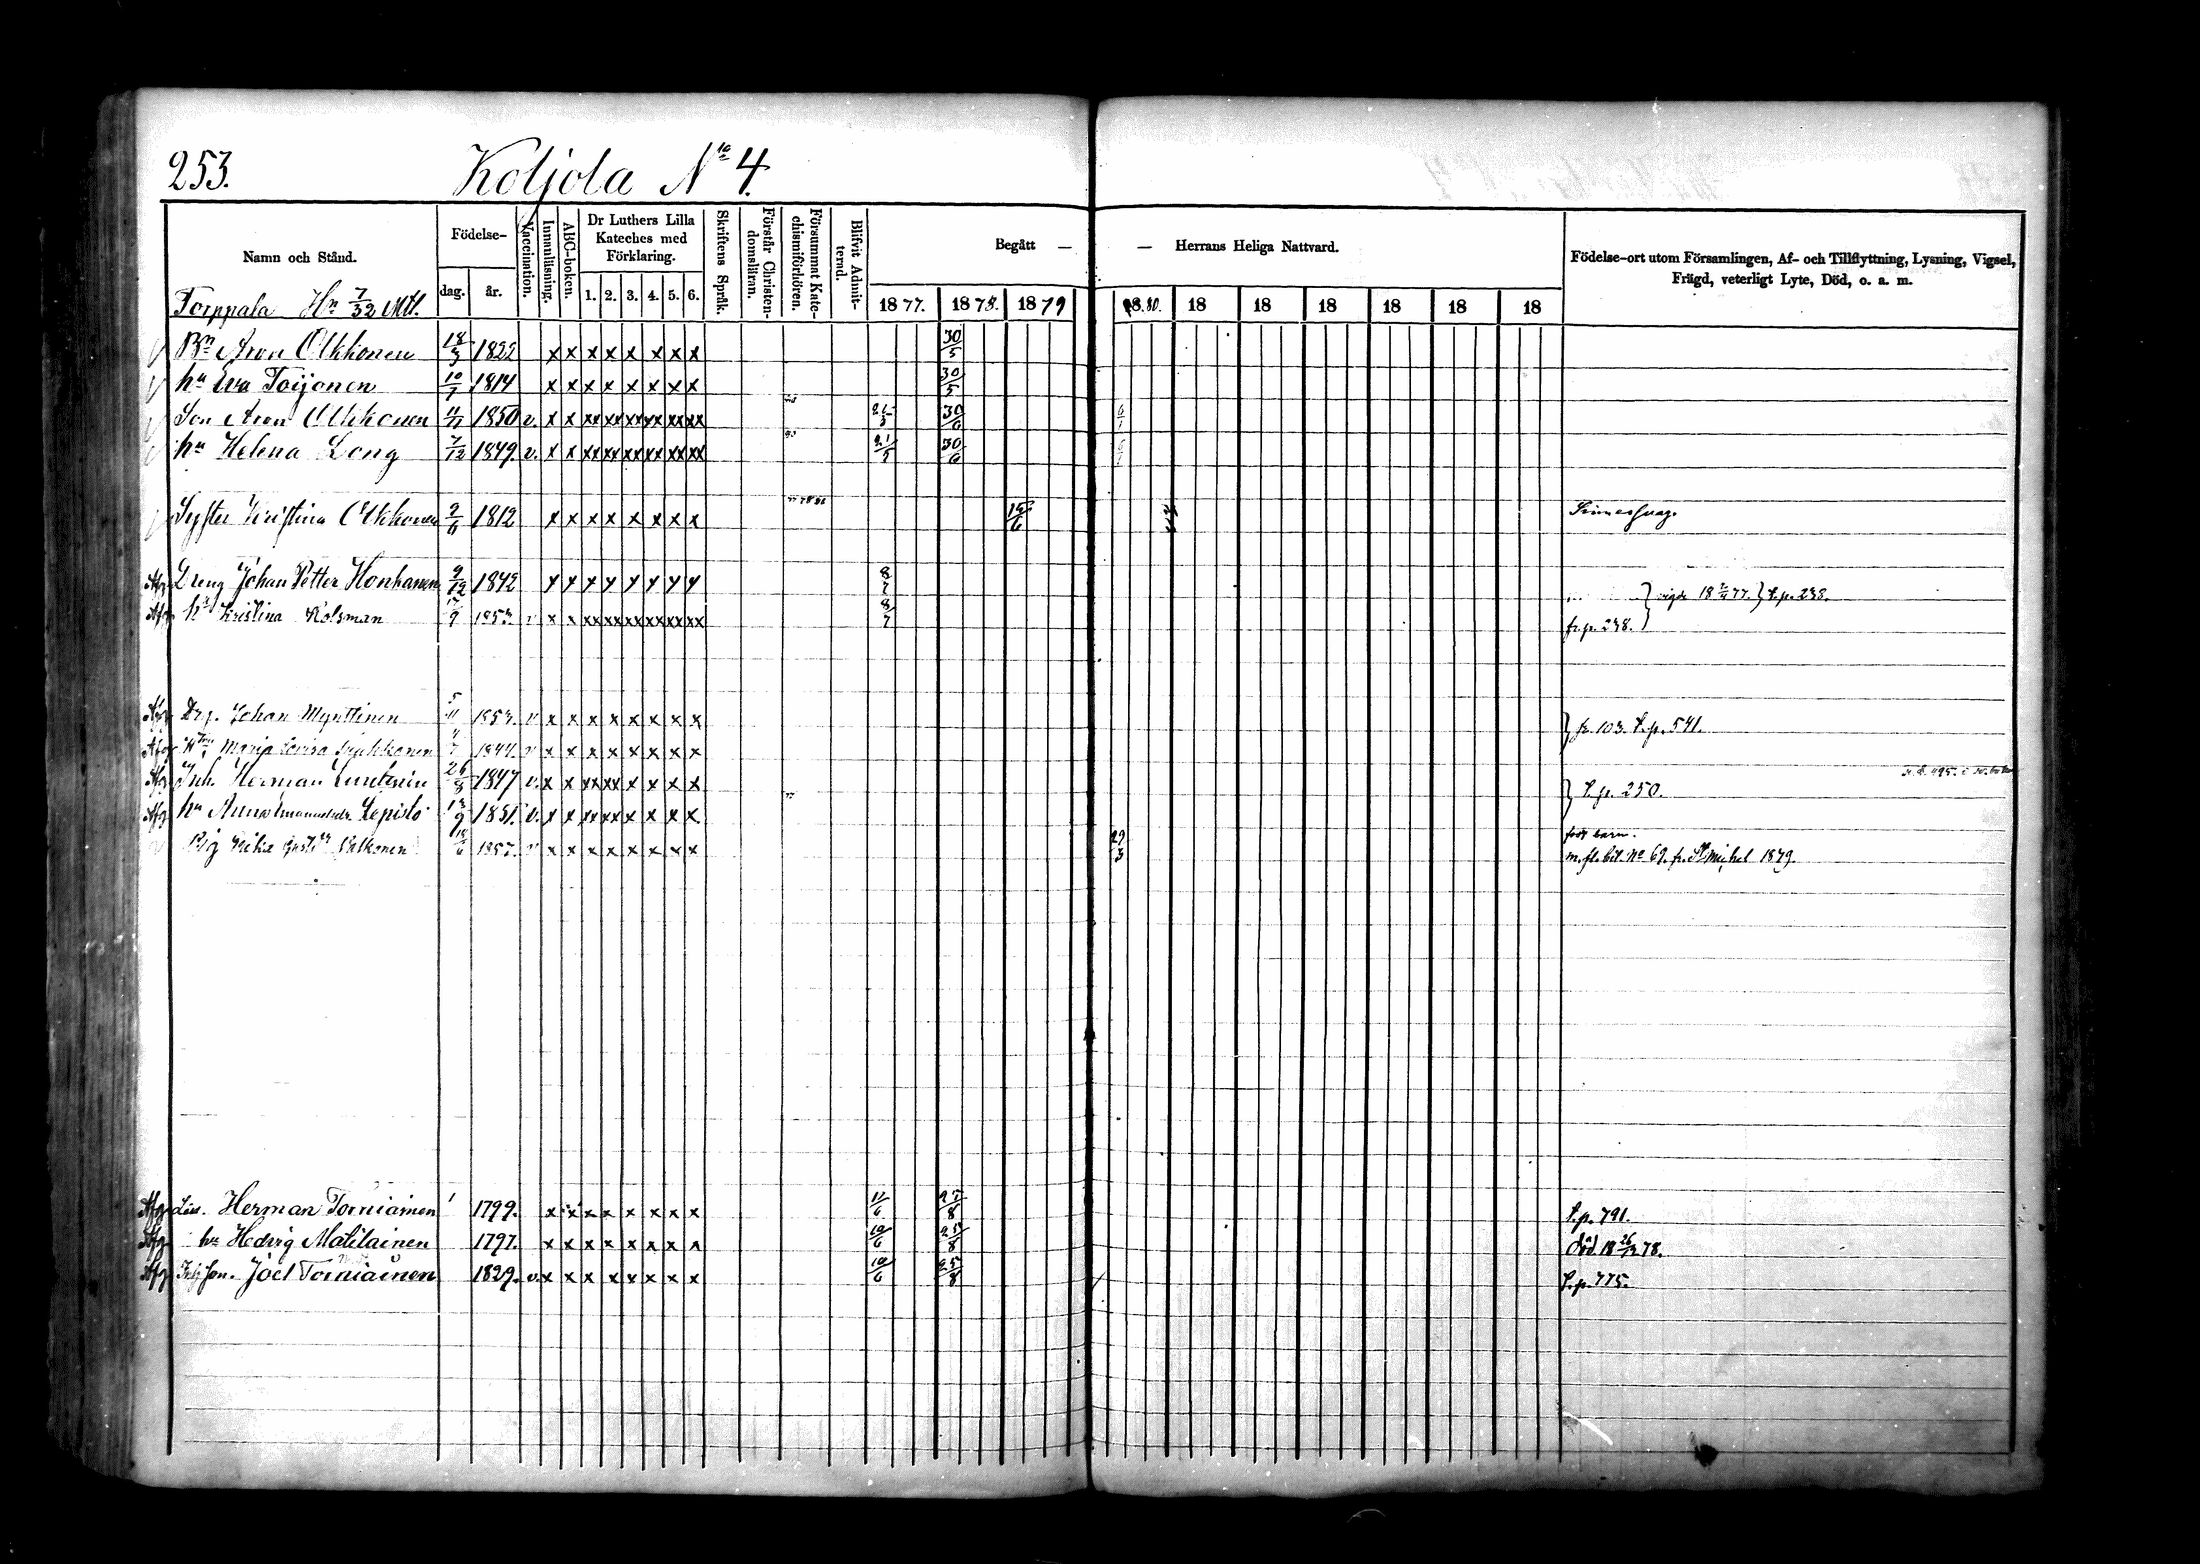 253.
Koljola N:o 4.
Namn och Stånd.
Födelse-
dag.
år.
Vaccination.
Innanläsning.
ABC-boken.
Dr Luthers Lilla
Kateches med
Förklaring.
1. 2. 3. 4. 5. 6.
Skriftens Språk.
Förstår Christen-
domsläran.
Försummat Kate-
chismiförhören.
Blifvit Admit-
terad.
Begått —
— Herrans Heliga Nattvard.
1877. 1878. 1879 18.80. 18 18 18 18 18 18
Födelse-ort utom Församlingen, Af- och Tillflyttning, Lysning, Vigsel,
Frägd, veterligt Lyte, Död, o. a. m.
Torppala Hn 7/32 Mtl.
Bn Aron Olkkonen 18/3 1822 x x x x x x x x 30/5
hu Eva Toijonen 10/7 1814 x x x x x x x x 30/5
Son Aron Olkkonen 1850 v. x x xx xx xx xx xx xx 30/6 6/1
hu Helena Long 7/12 1849. v. x x xx xx xx xx xx xx 21/5 30/6 6/1
Syster Kristina Olkkonen 2/6 1812 x x x x x x x x 15/6 Sinnessvag.
Afg Dreng Johan Petter Honkanen 9/12 1842 x x x x x x x x 8/7
Afg hu Kristina Kolsman 17/9 1853. v x x xx xx xx xx xx xx 8/7 fr. p. 238. } vigde 18 77. } t. p. 238.
Afg Drg. Johan Mynttinen 5/11 1853. v x x x x x x x x } fr. 103. t. p. 541.
Afg Maria Lovisa 1844. v x x x x x x x x
Afg Inh. Herman 26/8 1847 v. x x xx xx x x x x } t. p. 250.
Afg hu Anna Lepistö 13/9 1851. v. x x xx xx x x x x
Pig 18/6 1857. v x x x x x x x x 29/3 m. fl. bet. No 69. fr. St Michel 1879.
Afg Herman Torniainen 1799. x x x x x x x x 11/6 25/8 t. p. 791.
Afg hu Hedvig Matilainen 1797. x x x x x x x x 10/6 25/8 död 18 26/12 78.
Afg Son. Joel Torniainen 1829. v. x x x x x x x x 10/6 25/8 t. p. 775.